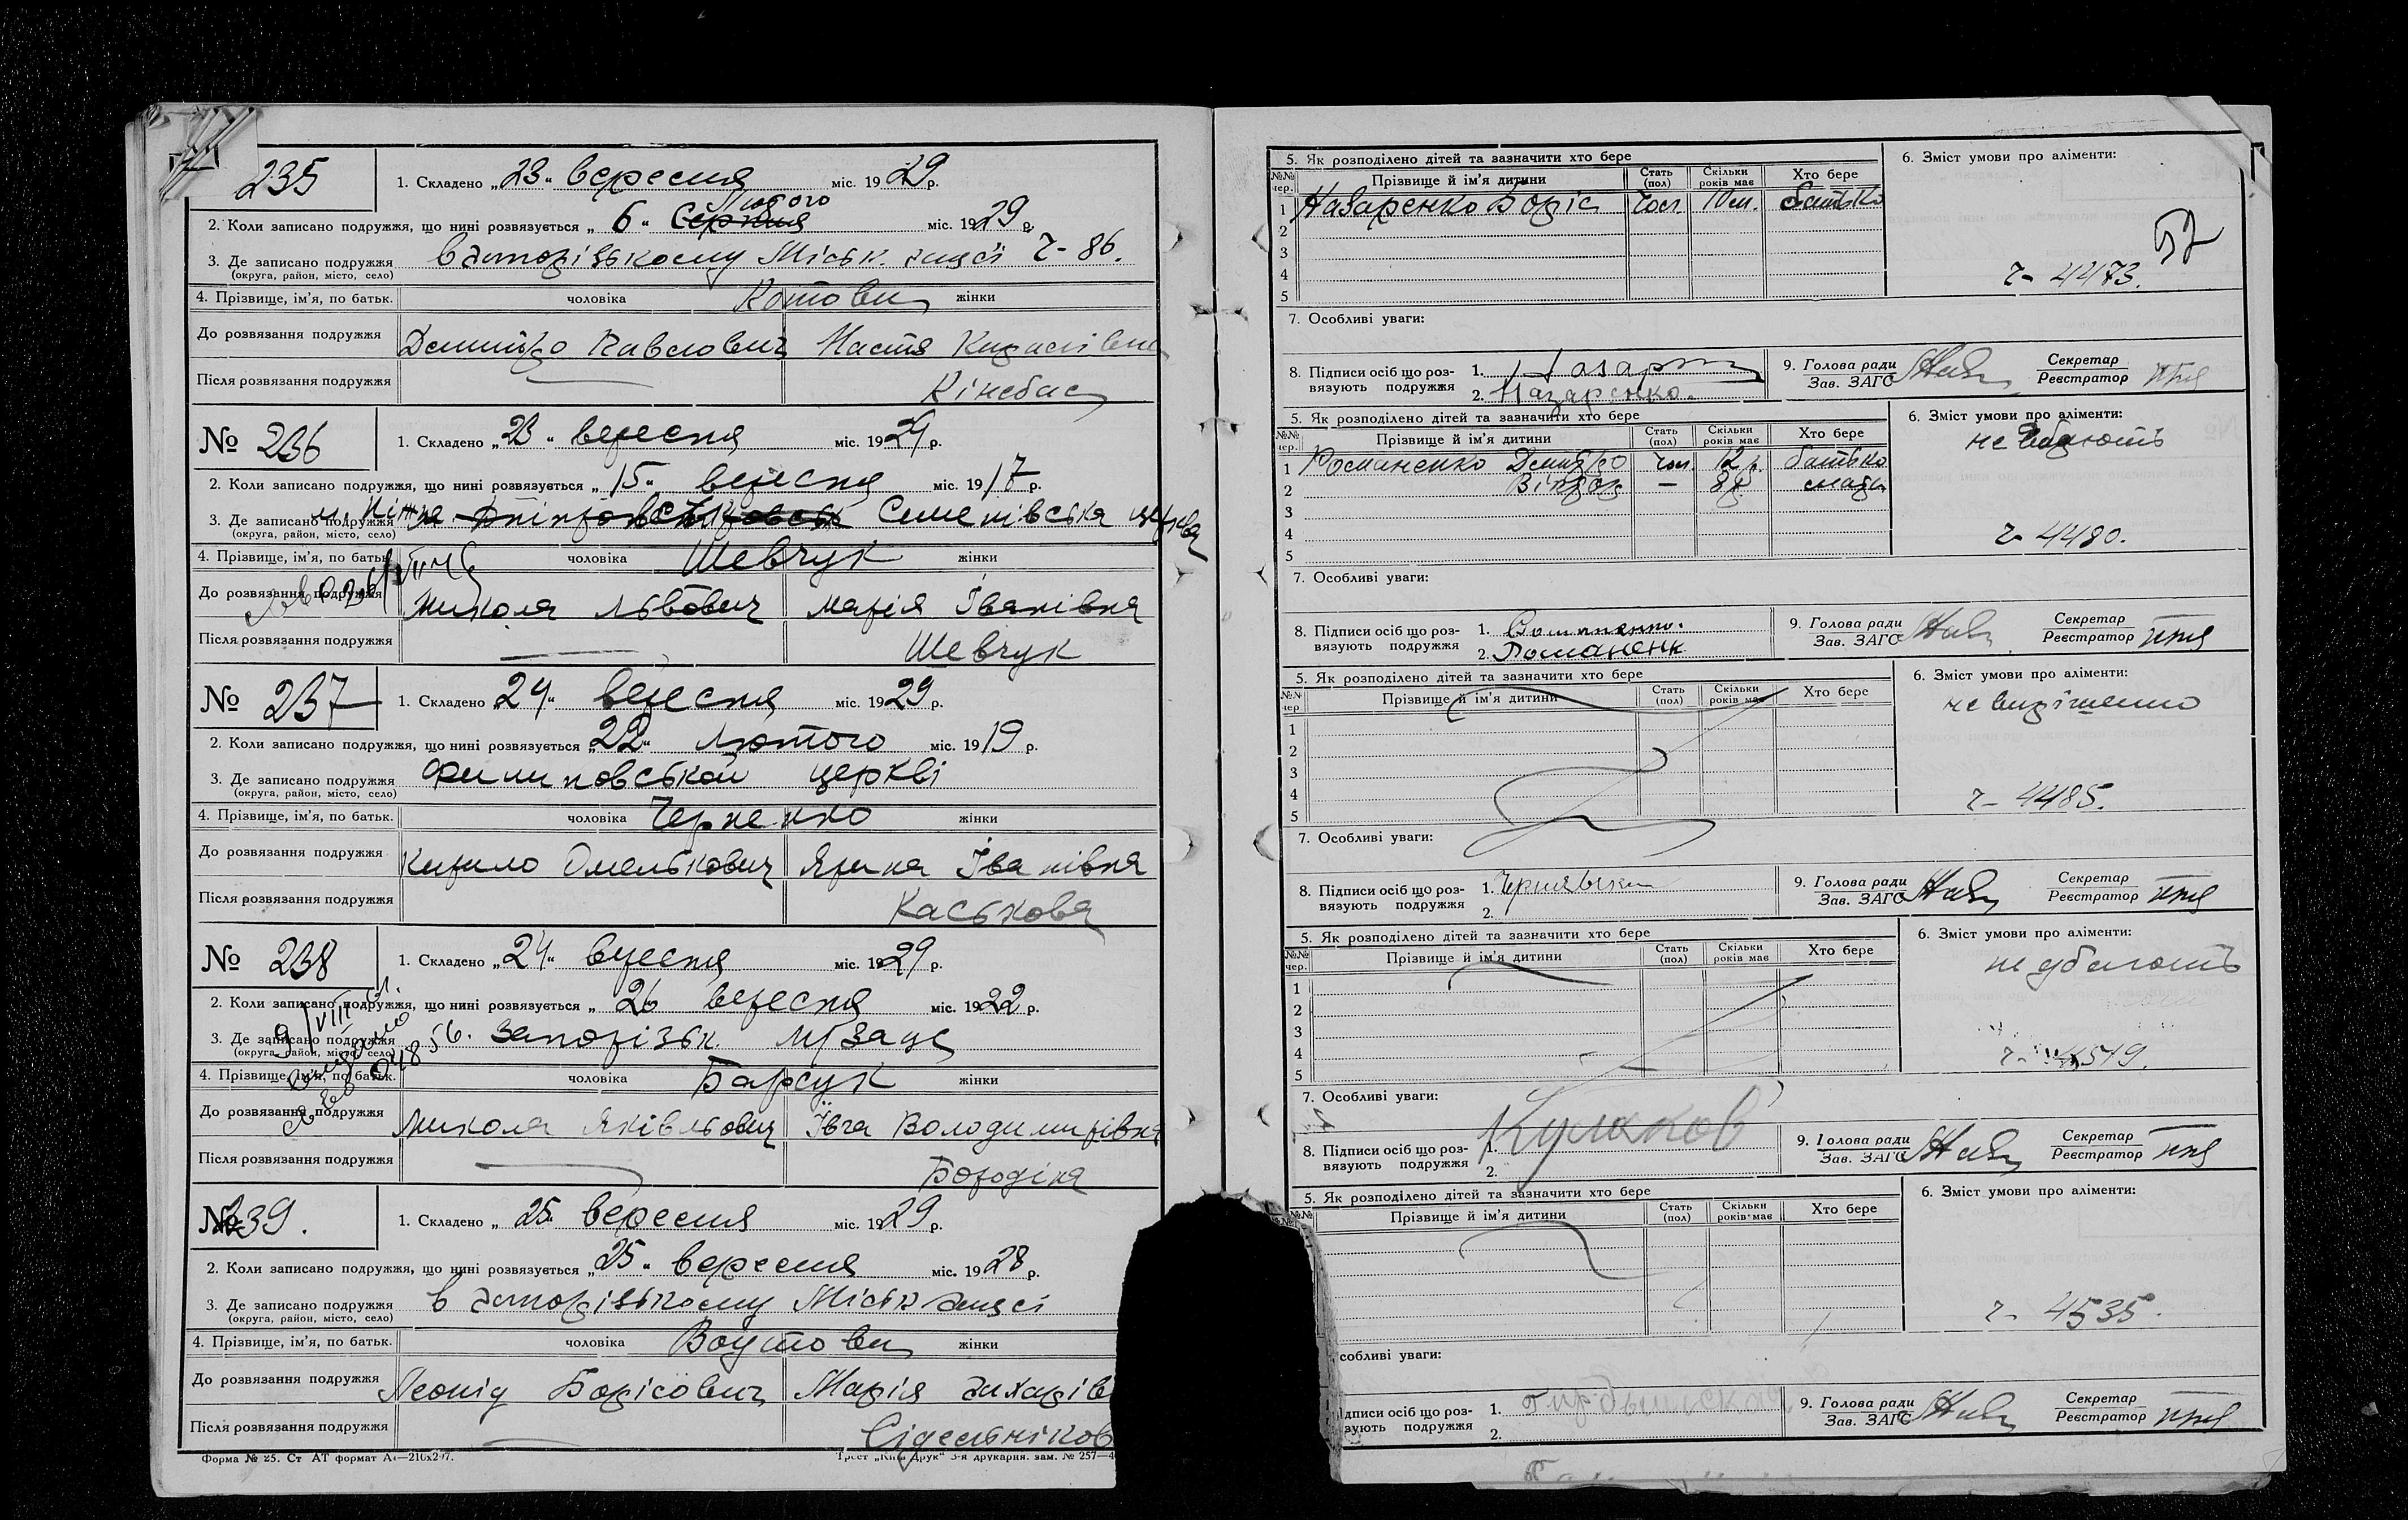 235
1. Складено „23“ вересня міс. 1929 р.
Лютого
2. Коли записано подружжя, що нині розвязується „6“ Серпня міс. 1929 р.
3. Де записано подружжя В Запорізькому Міськ. Загсі Ч- 86.
(округа, район, місто, село)
4. Прізвище, ім'я, по батьк. чоловіка Котови жінки
До розвязання подружжя Дмитро Павлович Настя Кирилівна
Після розвязання подружжя Кінебас
№ 236 1. Складено „23“ вересня міс. 1929 р.
2. Коли записано подружжя, що нині розвязується „15“ вересня міс. 1917 р.
3. Де записано подружжя Семенівська церква
(округа, район, місто, село)
4. Прізвище, ім'я, по батьк. чоловіка Шевчук жінки
До розвязання подружжя Микола Львович Марія Іванівна
Після розвязання подружжя Шевчук
№ 237 1. Складено „24“ вересня міс. 1929 р.
2. Коли записано подружжя, що нині розвязується „22“ лютого міс. 1919 р.
3. Де записано подружжя Филиповськой церкві
(округа, район, місто, село)
4. Прізвище, ім'я, по батьк. чоловіка Черненко жінки
До розвязання подружжя Кирило Омелькович Ярина Іванівна
Після розвязання подружжя Каськова
№ 238 1. Складено „24“ вересня міс. 1929 р.
2. Коли записано подружжя, що нині розвязується „26 вересня міс. 1922 р.
3. Де записано подружжя Запорізьк. м/загс
(округа, район, місто, село)
4. Прізвище, ім'я, по батьк. чоловіка Барсук жінки
До розвязання подружжя Микола Яківльович Ївга Володимирівна
Після розвязання подружжя Бородіна
№ 239. 1. Складено „25“ вересня міс. 1929 р.
2. Коли записано подружжя, що нині розвязується „25“ вересня міс. 1928 р.
3. Де записано подружжя в Запорізькому Міськ Загсі
(округа, район, місто, село)
4. Прізвище, ім'я, по батьк. чоловіка жінки
До розвязання подружжя Леонід Борісович Марія Захарів
Після розвязання подружжя Сідельніков
Форма № 25. Ст АТ формат А4—210х297. Трест „Київ Друк“ 3-я друкарня. зам. № 257—4
5. Як розподілено дітей та зазначити хто бере 6. Зміст умови про аліменти:
№№ чер. Прізвище й ім'я дитини Стать (пол) Скільки років має Хто бере
1 Назаренко Боріс чол. 10 м. батько
2
3
4 Ч- 4473. 57
5
7. Особливі уваги:
8. Підписи осіб що роз- 1. 9. Голова ради Секретар
вязують подружжя 2. Назаренко. Зав. ЗАГС Реєстратор
5. Як розподілено дітей та зазначити хто бере 6. Зміст умови про аліменти:
№№ чер. Прізвище й ім'я дитини Стать (пол) Скільки років має Хто бере не вбають
1 Романенко Дмитро чол. 12 р. батько
2 Віктор — 8 р. мати
3
4 Ч- 4480.
5
7. Особливі уваги:
8. Підписи осіб що роз- 1. 9. Голова ради Секретар
вязують подружжя 2. Романенк Зав. ЗАГС Реєстратор
5. Як розподілено дітей та зазначити хто бере 6. Зміст умови про аліменти:
№№ чер Прізвище й ім'я дитини Стать (пол) Скільки років має Хто бере не вирішенно
1
2
3
4 Ч- 4485.
5
7. Особливі уваги:
8. Підписи осіб що роз- 1. 9. Голова ради Секретар
вязують подружжя 2. Зав. ЗАГС Реєстратор
5. Як розподілено дітей та зазначити хто бере 6. Зміст умови про аліменти:
№№ чер. Прізвище й ім'я дитини Стать (пол) Скільки років має Хто бере не дбають
1
2
3
4 Ч- 4519.
5
7. Особливі уваги:
8. Підписи осіб що роз- 1. Кулаков 9. Голова ради Секретар
вязують подружжя 2. Зав. ЗАГС Реєстратор
5. Як розподілено дітей та зазначити хто бере 6. Зміст умови про аліменти:
№№ Прізвище й ім'я дитини Стать (пол) Скільки років має Хто бере
Ч- 4535.
собливі уваги:
дписи осіб що роз- 1. 9. Голова ради Секретар
зують подружжя 2. Зав. ЗАГС Реєстратор